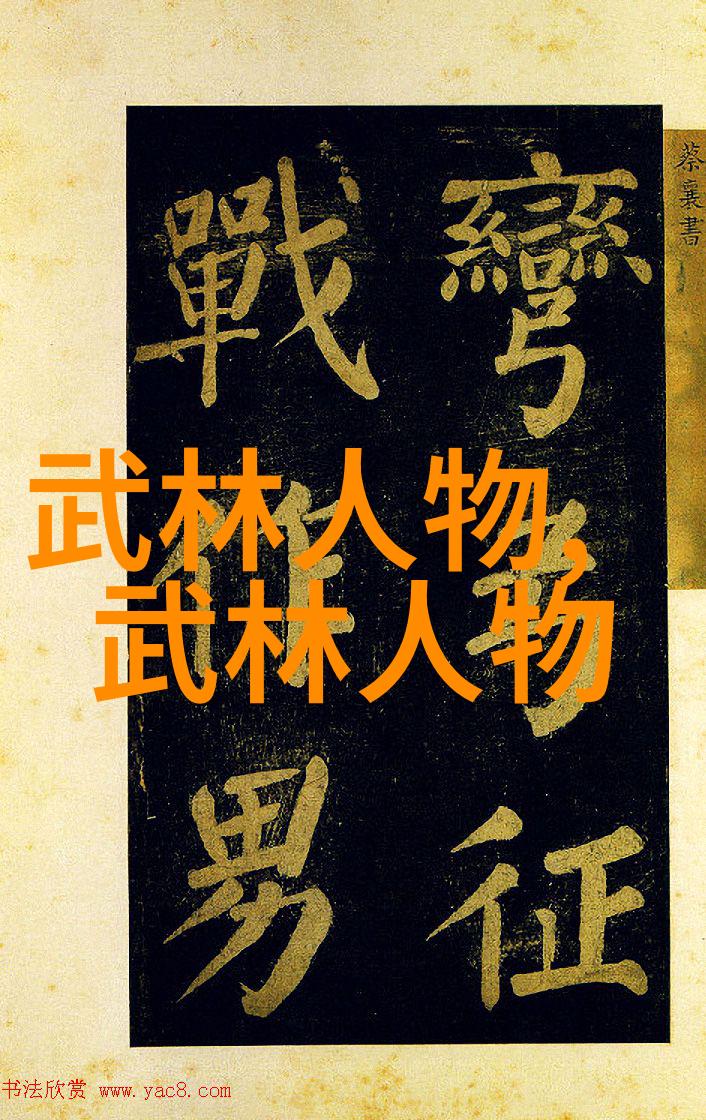 蔡襄書
彎征
戰作男
武林人物,
武林人物
书法欣赏 www.yac8.com